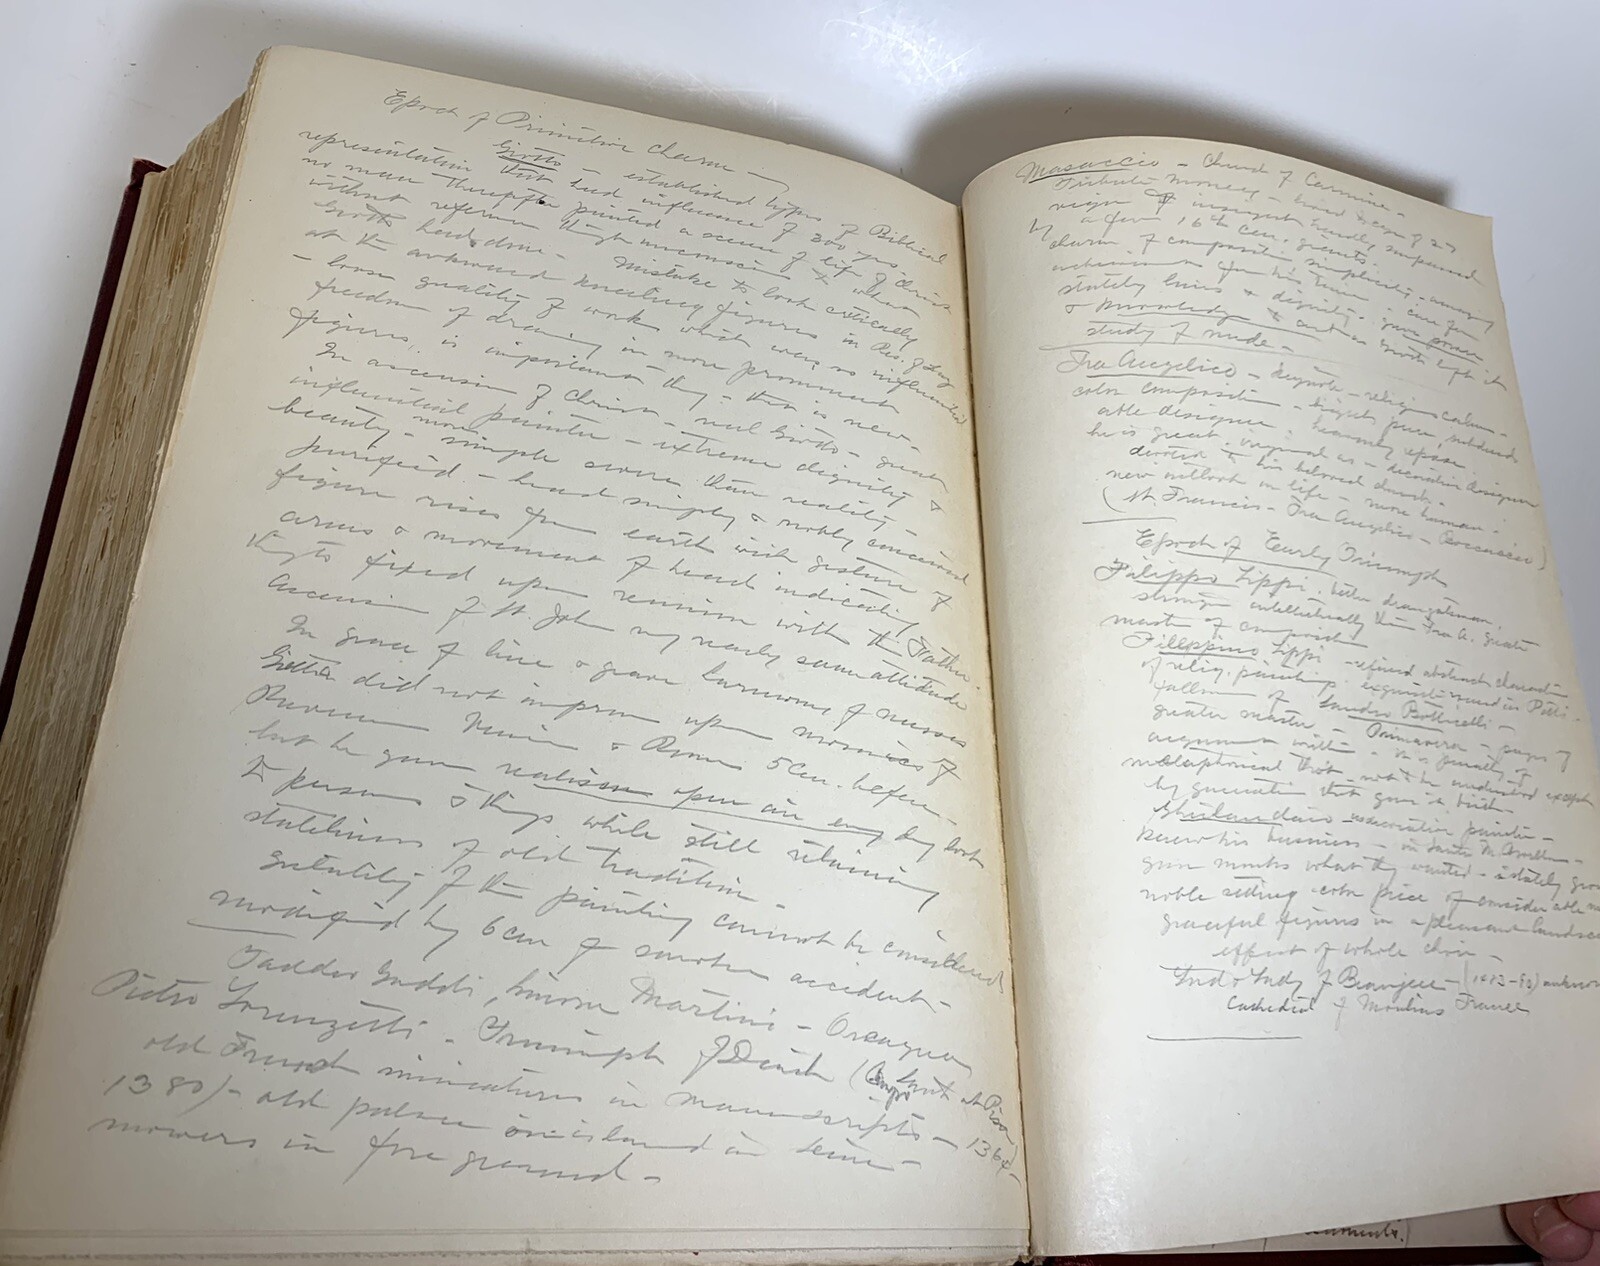 Epoch of Primitive Charm —
Giotto — established types of Biblical
representation that had influence of 200 yrs.
no man thereafter painted a scene of life of Christ
without reference though unconscious to what
Giotto had done — Mistake to look critically
at the awkward kneeling figures in Res. of Laz
— loose quality of work which was so influential
freedom of drawing in more prominent
figures, is important thing — this is new —
In ascension of Christ — real Giotto — great
influential painter — extreme dignity &
beauty — more simple severe than reality —
purified — head simply & nobly conceived
figure rises from earth with gesture of
arms & movement of head indicating
thots fixed upon reunion with the Father.
Ascension of St. John very nearly same attitude
In grace of line & grave harmony of masses
Giotto did not improve upon mosaics of
Ravenna Venice & Rome 5 cen. before —
but he gave realism open air every day look
to persons & things while still retaining
stateliness of old tradition —
of the painting cannot be considered
modified by 6 cen of smoke accident —
Taddeo Gaddi, Simone Martini — Orcagna
Pietro Lorenzetti — Triumph of Death (Campo Santo at Pisa)
old French miniatures in manuscripts — 1364 —
1380) — old palace on island in Seine —
mowers in fore ground —
Masaccio — Church of Carmine —
Tribute money —
a few 16th cen. giants.
charm of composition, simplicity — amazing
for his time — care for
stately lines & dignity — gave
& knowledge and
study of nude —
Fra Angelico — keynote — religious calm —
color composition — bright, pure,
able designer — heavenly repose
he is great — as — decorative designer
devoted to his beloved church.
new outlook on life — more human —
(St. Francis — Fra Angelico — Boccaccio)
Epoch of Early Triumph
Filippo Lippi, better draughtsman,
stronger intellectually than Fra A. greater
master of composit
Filippino Lippi — refined abstract character
of relig. painting. exquisite in Pitti —
follower of Sandro Botticelli —
greater master — Primavera — pages of
written — it is penalty of
metaphorical thot — not to be understood except
by generation that gave it birth.
Ghirlandaio — decorative painter —
Knew his business — in Santa M. Novella —
gave monks what they wanted — stately
noble setting — color piece of considerable
graceful figures in a pleasant
effect of whole
Lord & Lady of Beaujeu — unknown
Cathedral of Moulins France